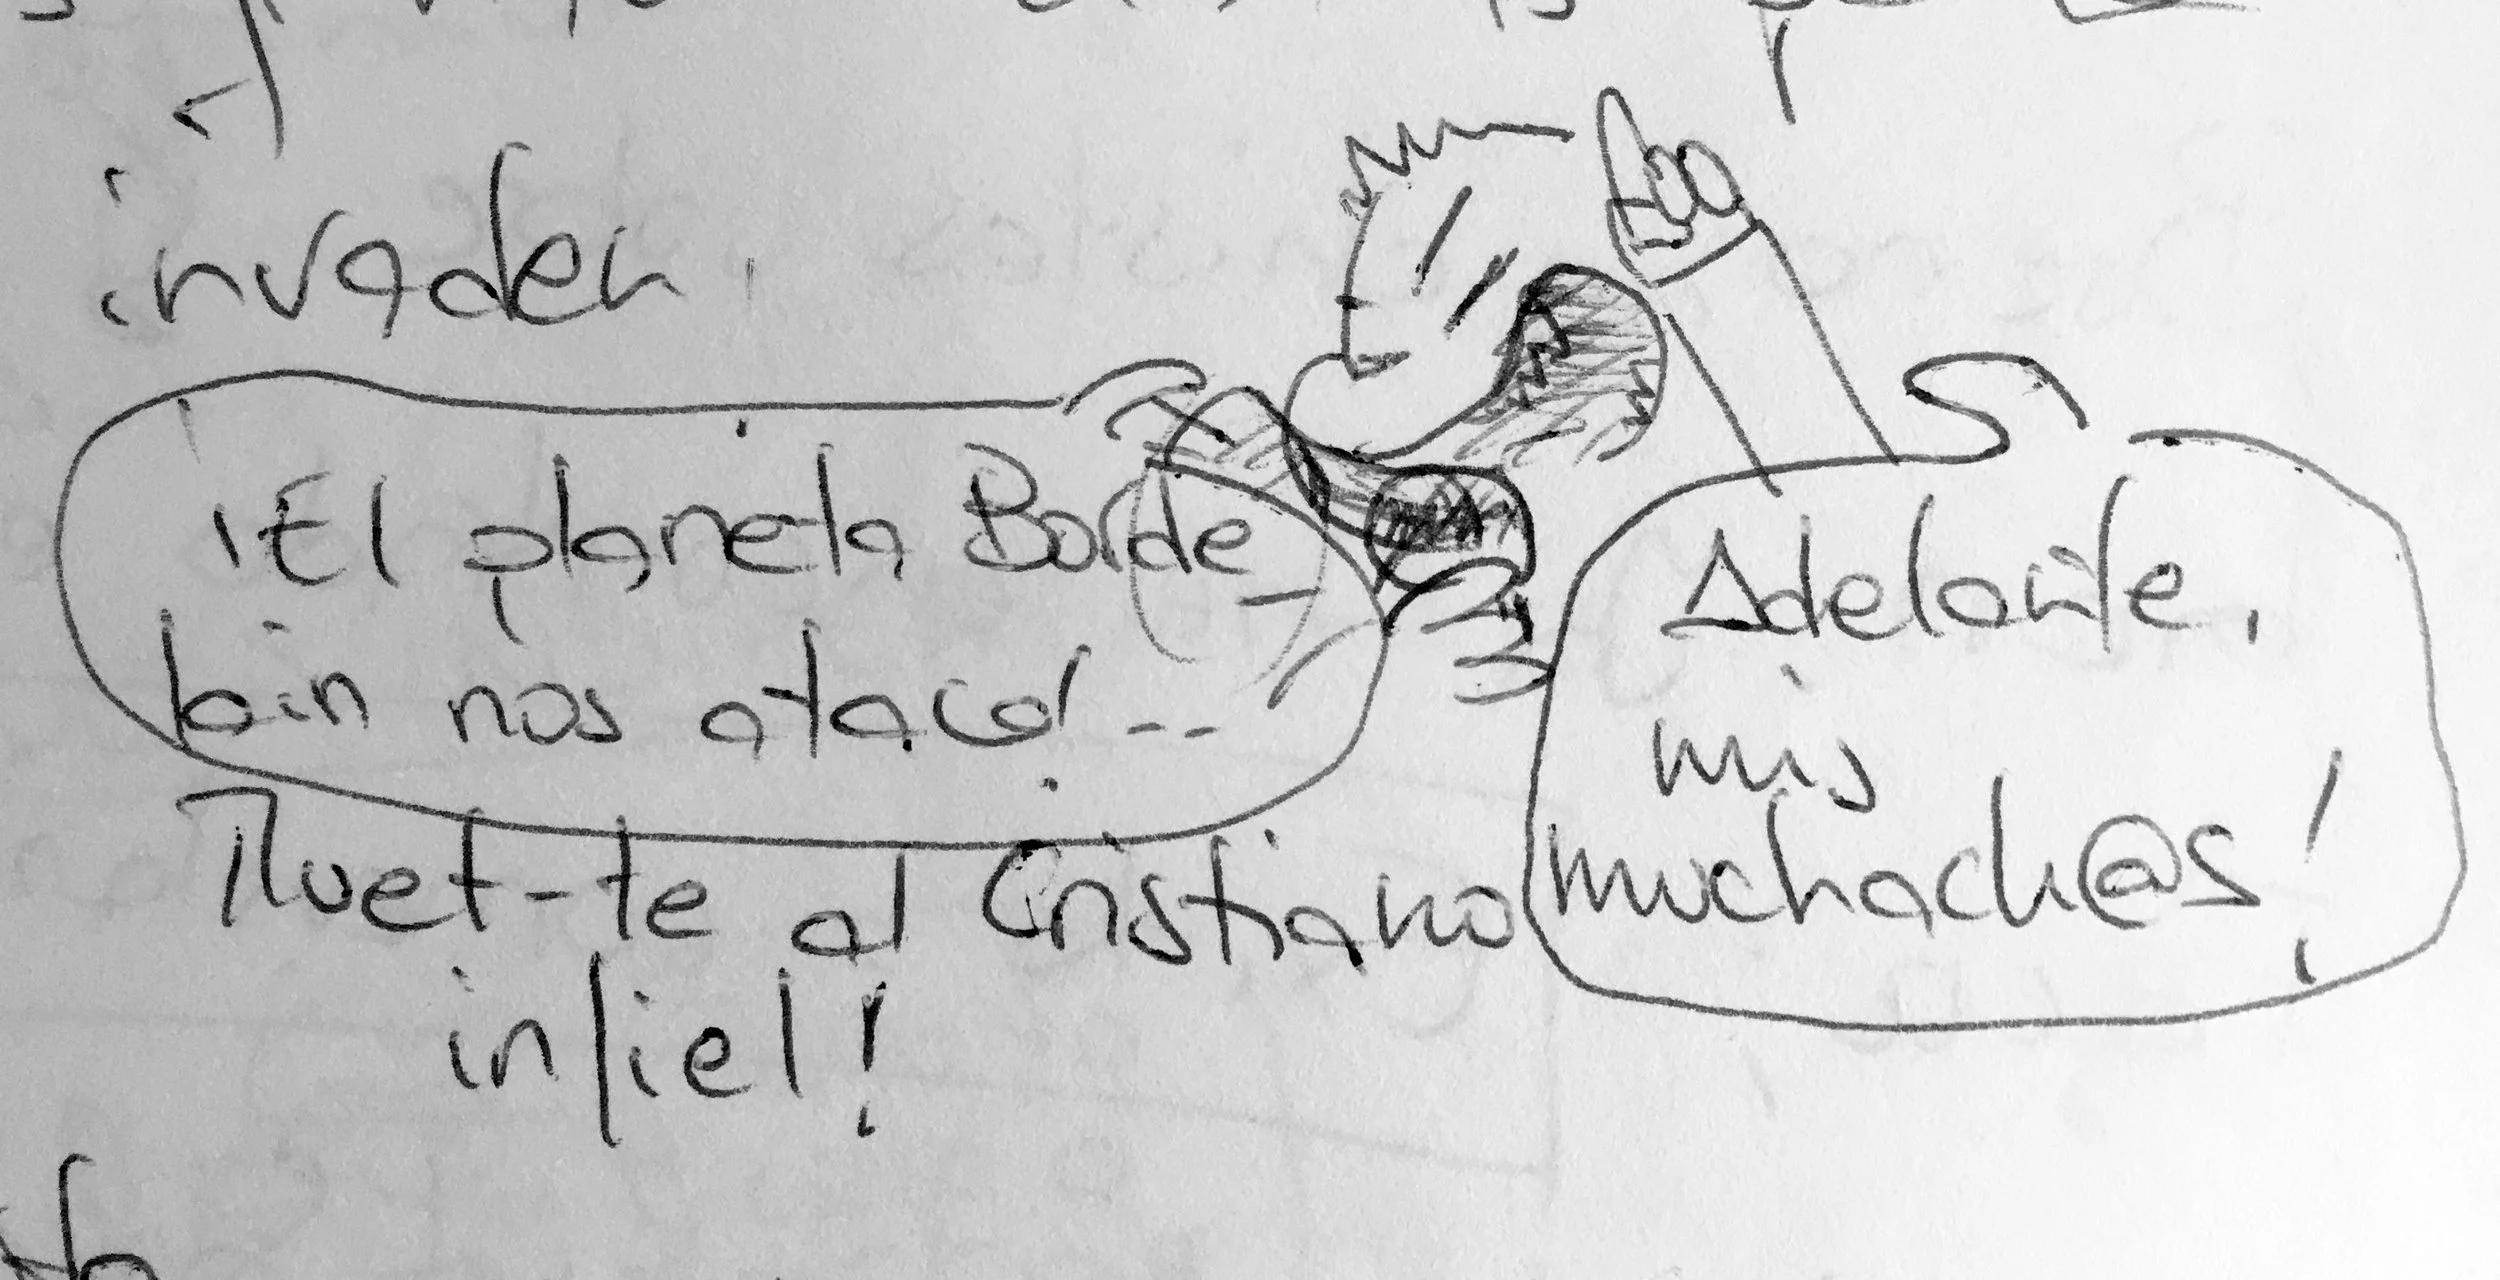 invaden.
¡El planeta Borde-
lain nos ataca!--
Muet-te al Cristiano
infiel!
Adelante,
mis
muchach@s!